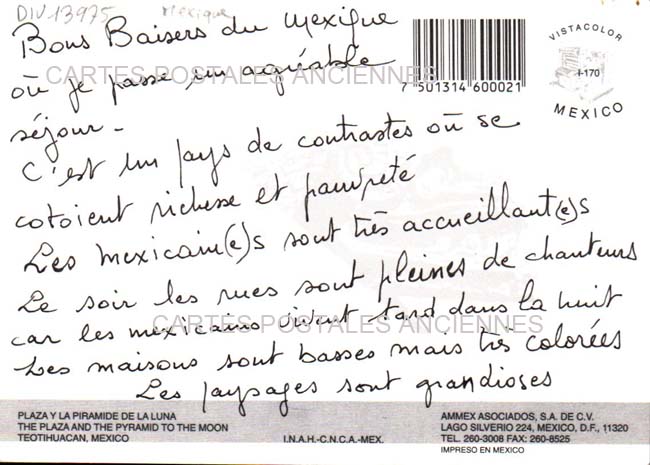 DIV13975 Mexique
Bons Baisers du Mexique
CARTES POSTALES ANCIENNES
où je passe un agréable
séjour -
C'est un pays de contrastes où se
cotoient richesse et pauvreté
Les mexicain(e)s sont très accueillant(e)s
Le soir les rues sont pleines de chanteurs
car les mexicains vivent tard dans la nuit
CARTES POSTALES ANCIENNES
Les maisons sont basses mais très colorées
Les paysages sont grandioses
7 501314 600021
VISTACOLOR
I-170
MEXICO
PLAZA Y LA PIRAMIDE DE LA LUNA
THE PLAZA AND THE PYRAMID TO THE MOON
TEOTIHUACAN, MEXICO
I.N.A.H.-C.N.C.A.-MEX.
AMMEX ASOCIADOS, S.A. DE C.V.
LAGO SILVERIO 224, MEXICO, D.F., 11320
TEL. 260-3008 FAX: 260-8525
IMPRESO EN MEXICO